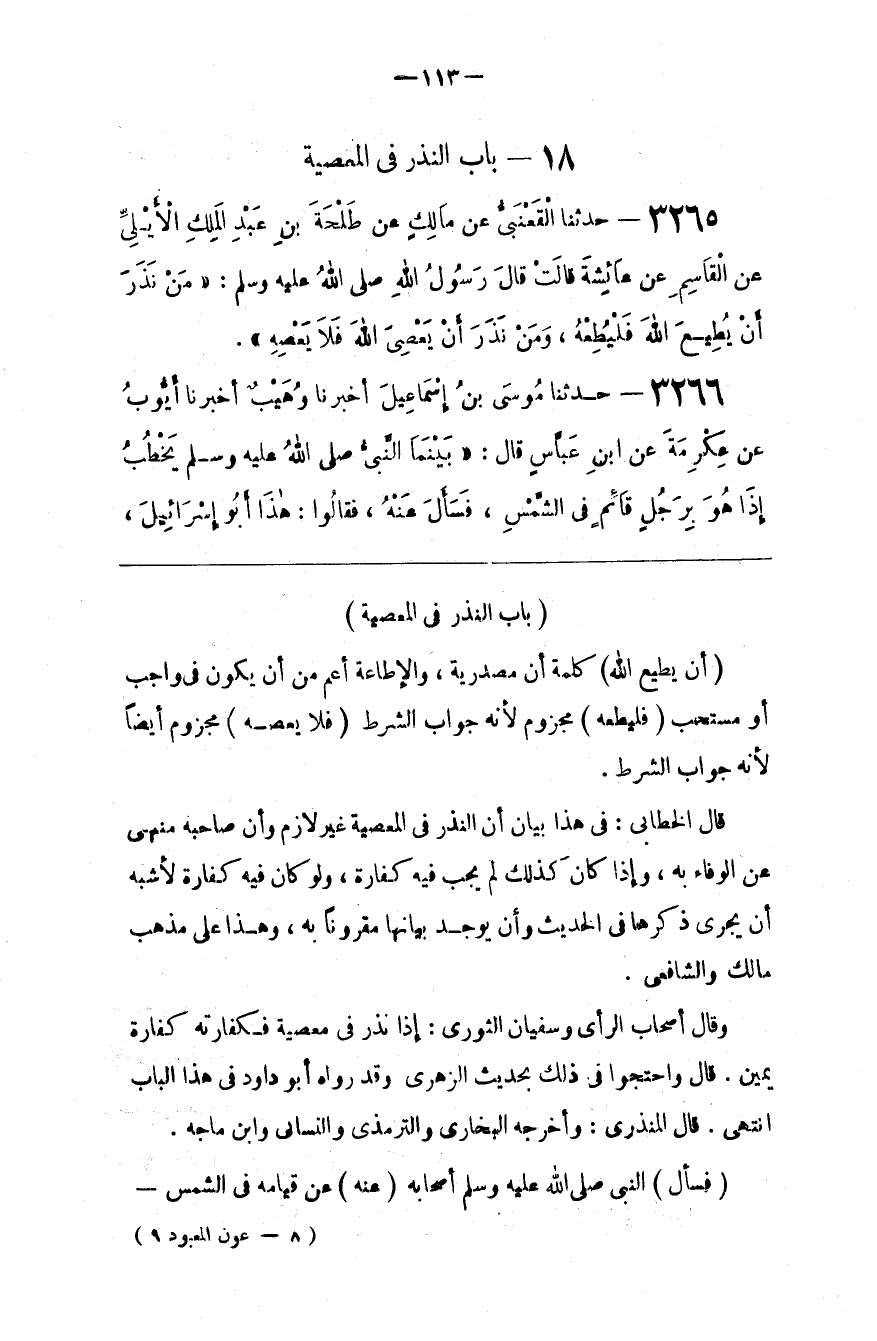 — ١١٣ —
١٨ — باب النذر فى المعصية
٣٢٦٥ — حدثنا الْقَعْنَبىُّ عن مَالِكٍ عن طَلْحَةَ بنِ عَبْدِ المَلِكِ الْأَيْـلِىِّ
عن الْقَاسِمِ عن عَائِشةَ قالَتْ قالَ رَسُولُ اللهِ صلى اللهُ عليه وسلم : « مَنْ نَذَرَ
أَنْ يُطِيـعَ اللهَ فَلْيُطِعْهُ ، وَمَنْ نَذَرَ أَنْ يَعْصِىَ اللهَ فَلَا يَعْصِهِ » .
٣٢٦٦ — حـدثنا مُوسَى بنُ إِسْمَاعِيلَ أخبرنا وُهَيْبٌ أخبرنا أَيُّوبُ
عن عِكْرِمَةَ عن ابنِ عَبَّاسٍ قال : « بَيْنَمَا النَّبىُّ صلى اللهُ عليه وسـلم يَخْطُبُ
إِذَا هُوَ بِرَجُلٍ قَائِمٍ فى الشَّمْسِ ، فَسَأَلَ عَنْهُ ، فقالُوا : هٰذَا أَبُو إِسْرَائِيلَ ،
( باب النذر فى المعصية )
( أن يطيع الله) كلمة أن مصدرية ، والإطاعة أعم من أن يكون فى واجب
أو مستحب ( فليطعه ) مجزوم لأنه جواب الشرط ( فلا يعصـه ) مجزوم أيضاً
لأنه جواب الشرط .
قال الخطابى : فى هذا بيان أن النذر فى المعصية غير لازم وأن صاحبه منهى
عن الوفاء به ، وإذا كان كذلك لم يجب فيه كفارة ، ولو كان فيه كفارة لأشبه
أن يجرى ذكرها فى الحديث وأن يوجـد بيانها مقروناً به ، وهـذا على مذهب
مالك والشافعى .
وقال أصحاب الرأى وسفيان الثورى : إذا نذر فى معصية فـكفارته كفارة
يمين . قال واحتجوا فى ذلك بحديث الزهرى وقد رواه أبو داود فى هذا الباب
انتهى . قال المنذرى : وأخرجه البخارى والترمذى والنسائى وابن ماجه .
( فسأل ) النبى صلى الله عليه وسلم أصحابه ( عنه ) عن قيامه فى الشمس —
( ٨ — عون المعبود ٩ )